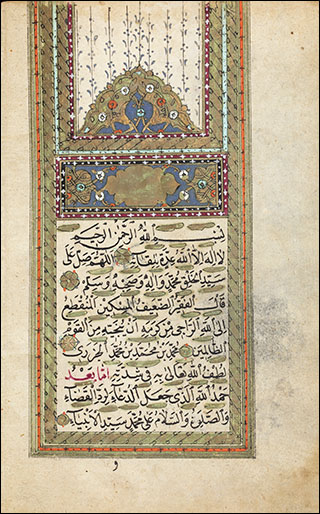 بسم الله الرحمن الرحيم
لا اله الا الله عدة للقائه اللهم صل على
سيد الخلق محمد واله وصحبه وسلم
قال الفقير الضعيف المسكين المنقطع
الى الله الراجي من كرمه ان ينجيه من القوم
الظالمين محمد بن محمد بن محمد الجزري
لطف الله تعالى به في شدته اما بعد
حمد الله الذي جعل الدعاء لرد القضاء
والصلوة والسلام على محمد سيد الانبياء
و